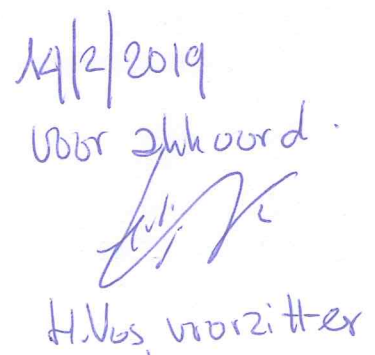 14/2/2019
voor akkoord.
H.Vos, voorzitter